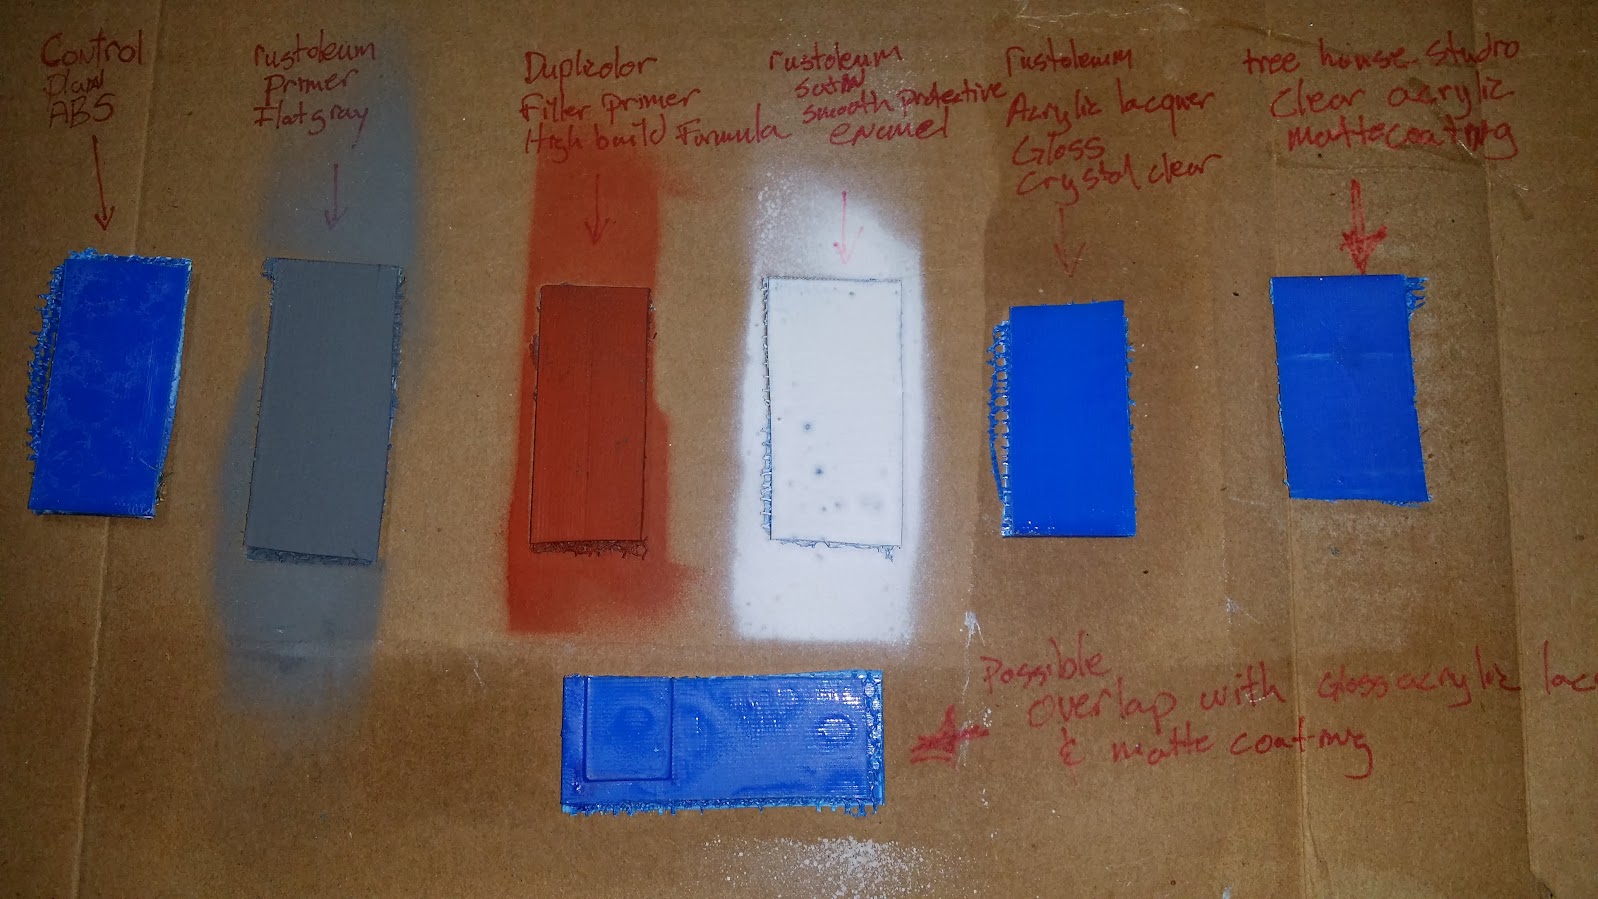 Control
Plain
ABS
rustoleum
Primer
Flat gray
Duplcolor
Filler primer
High build Formula
rustoleum
satin
smooth protective
enamel
rustoleum
Acrylic lacquer
Gloss
Crystal clear
tree house studio
Clear acrylic
matte coating
Possible
overlap with Gloss acrylic lac
& matte coating